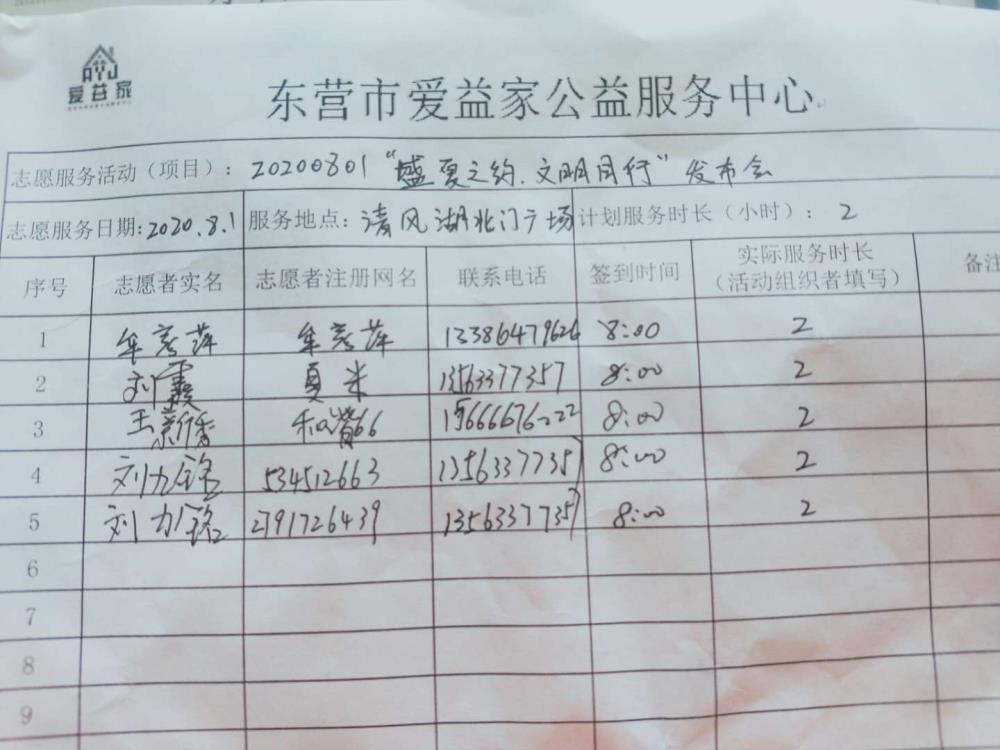 爱益家
东营市爱益家公益服务中心
志愿服务活动（项目）：20200801“盛夏之约.文明同行”发布会
志愿服务日期:2020.8.1 服务地点:清风湖北门广场 计划服务时长（小时）：2
序号 志愿者实名 志愿者注册网名 联系电话 签到时间 实际服务时长（活动组织者填写） 备注
1 牟彦萍 牟彦萍 13386479626 8:00 2
2 刘霞 夏米 13563377357 8:00 2
3 王新 66 15666676222 8:00 2
4 刘力铭 534512663 13563377357 8:00 2
5 刘力铭 2791726439 13563377357 8:00 2
6
7
8
9